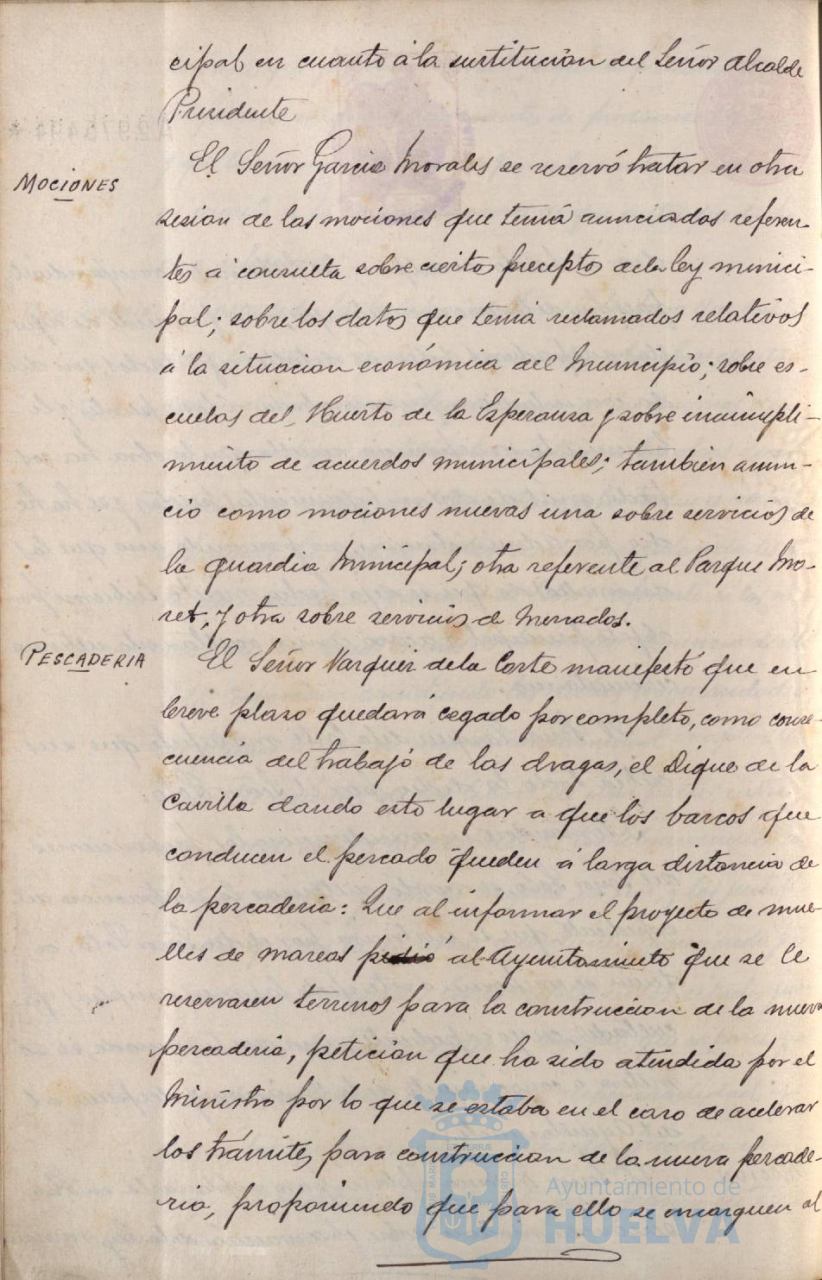 cipal en cuanto á la sustitución del Señor Alcalde
Presidente
MOCIONES
El Señor Garcia Morales se reservó tratar en otra
sesion de las mociones que tenia anunciadas referen-
tes a consulta sobre ciertos preceptos de la ley munici-
pal; sobre los datos que tenia reclamados relativos
á la situacion económica del Municipio; sobre es-
cuelas del Huerto de la Esperanza y sobre incumpli-
miento de acuerdos municipales; también anun-
ció como mociones nuevas una sobre servicios de
la guardia Municipal; otra referente al Parque Mo-
ret, y otra sobre servicios de Mercados.
PESCADERIA
El Señor Vazquez de la Corte manifestó que en
breve plazo quedará cegado por completo, como conse-
cuencia del trabajo de las dragas, el Dique de la
Cavilla dando esto lugar a que los barcos que
conducen el pescado queden á larga distancia de
la pescaderia: Que al informar el proyecto de mue-
lles de mareas pidió al Ayuntamiento que se le
reservasen terrenos para la construccion de la nueva
pescaderia, peticion que ha sido atendida por el
Ministro por lo que se estaba en el caso de acelerar
los trámites para construccion de la nueva pescade-
ria, proponiendo que para ello se encarguen al
Ayuntamiento de
HUELVA